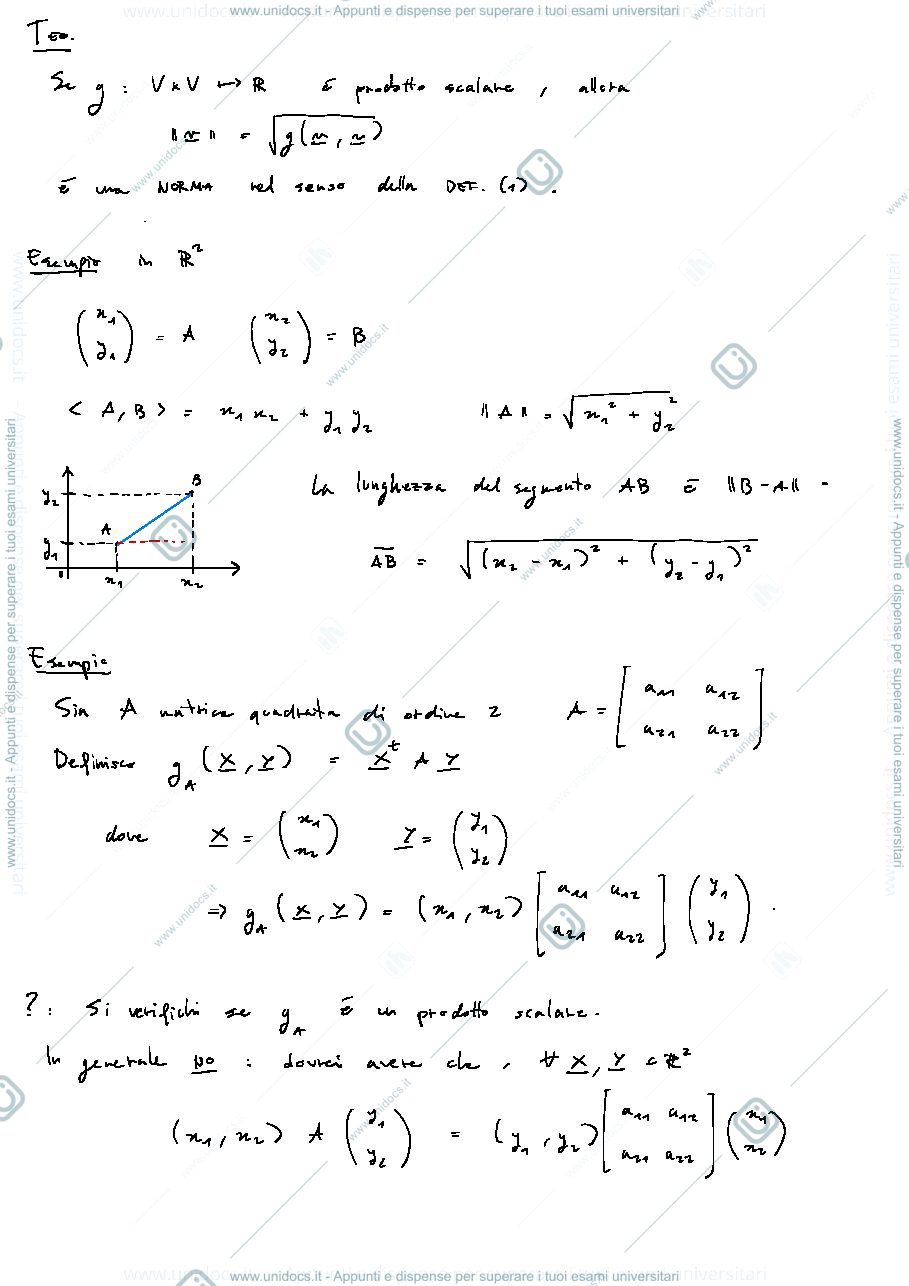 www.unidocs.it - Appunti e dispense per superare i tuoi esami universitari
Teo.
Se g : V x V ↦ ℝ è prodotto scalare, allora
||v|| = √g(v, v)
è una NORMA nel senso della DEF. (1).
Esempio in ℝ²
(x₁ y₁) = A (x₂ y₂) = B
< A, B > = x₁ x₂ + y₁ y₂ ||A|| = √x₁² + y₂²
La lunghezza del segmento AB è ||B - A|| -
y₂ B
A
y₁
0 x₁ x₂
AB = √(x₂ - x₁)² + (y₂ - y₁)²
Esempio
Sia A matrice quadrata di ordine 2 A = [a₁₁ a₁₂ a₂₁ a₂₂]
Definisco g_A (X, Y) = Xᵗ A Y
dove X = (x₁ x₂) Y = (y₁ y₂)
⇒ g_A (X, Y) = (x₁, x₂) [a₁₁ a₁₂ a₂₁ a₂₂] (y₁ y₂) .
? : Si verifichi se g_A è un prodotto scalare.
In generale NO : dovrei avere che, ∀ X, Y ∈ ℝ²
(x₁, x₂) A (y₁ y₂) = (y₁, y₂) [a₁₁ a₁₂ a₂₁ a₂₂] (x₁ x₂)
www.unidocs.it - Appunti e dispense per superare i tuoi esami universitari